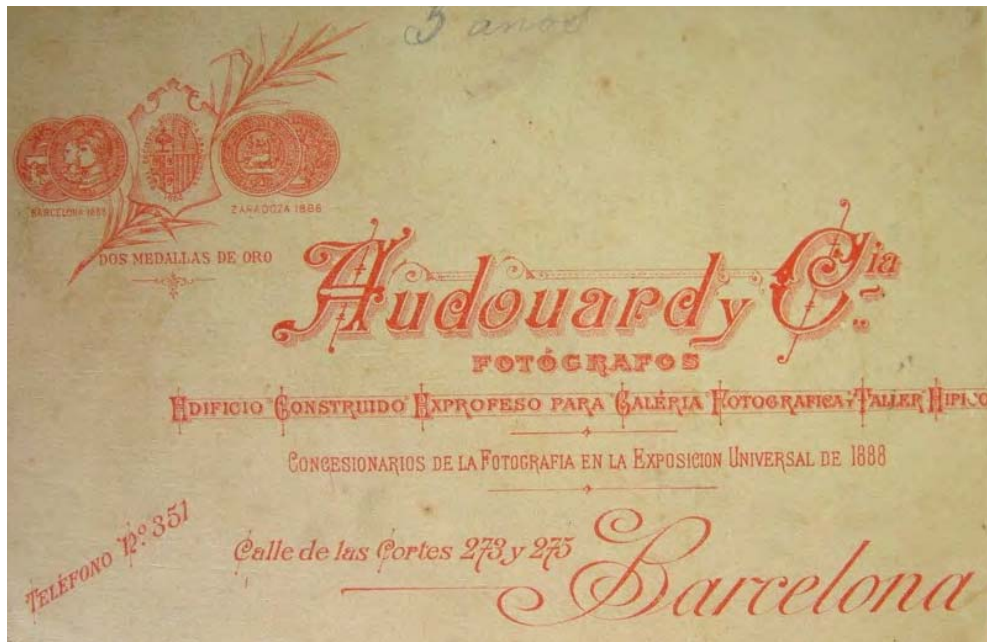 5 años
BARCELONA 1888
ZARAGOZA 1886
DOS MEDALLAS DE ORO
Audouard y Cia
FOTÓGRAFOS
EDIFICIO CONSTRUIDO EXPROFESO PARA GALÉRIA FOTOGRAFICA Y TALLER HIPICO
CONCESIONARIOS DE LA FOTOGRAFIA EN LA EXPOSICION UNIVERSAL DE 1888
TELÉFONO Nº 351
Calle de las Cortes 273 y 275
Barcelona